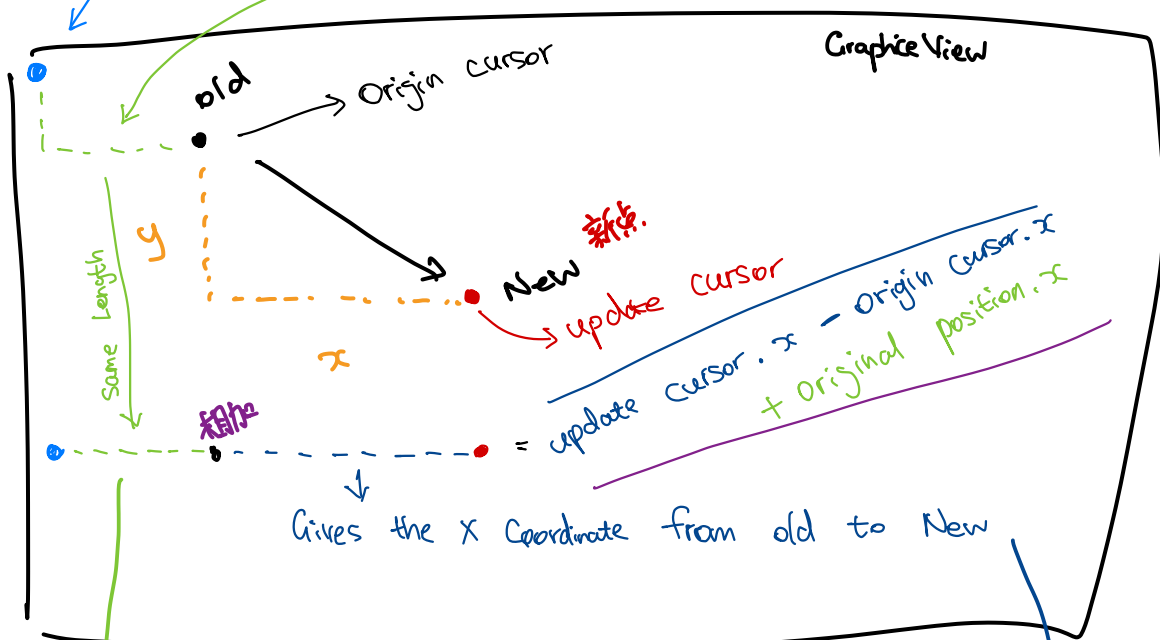 GraphiceView
old
Origin cursor
y
新点.
New
update cursor
Same Length
x
相加
= update cursor.x - origin cursor.x
+ original position.x
Gives the X Coordinate from old to New